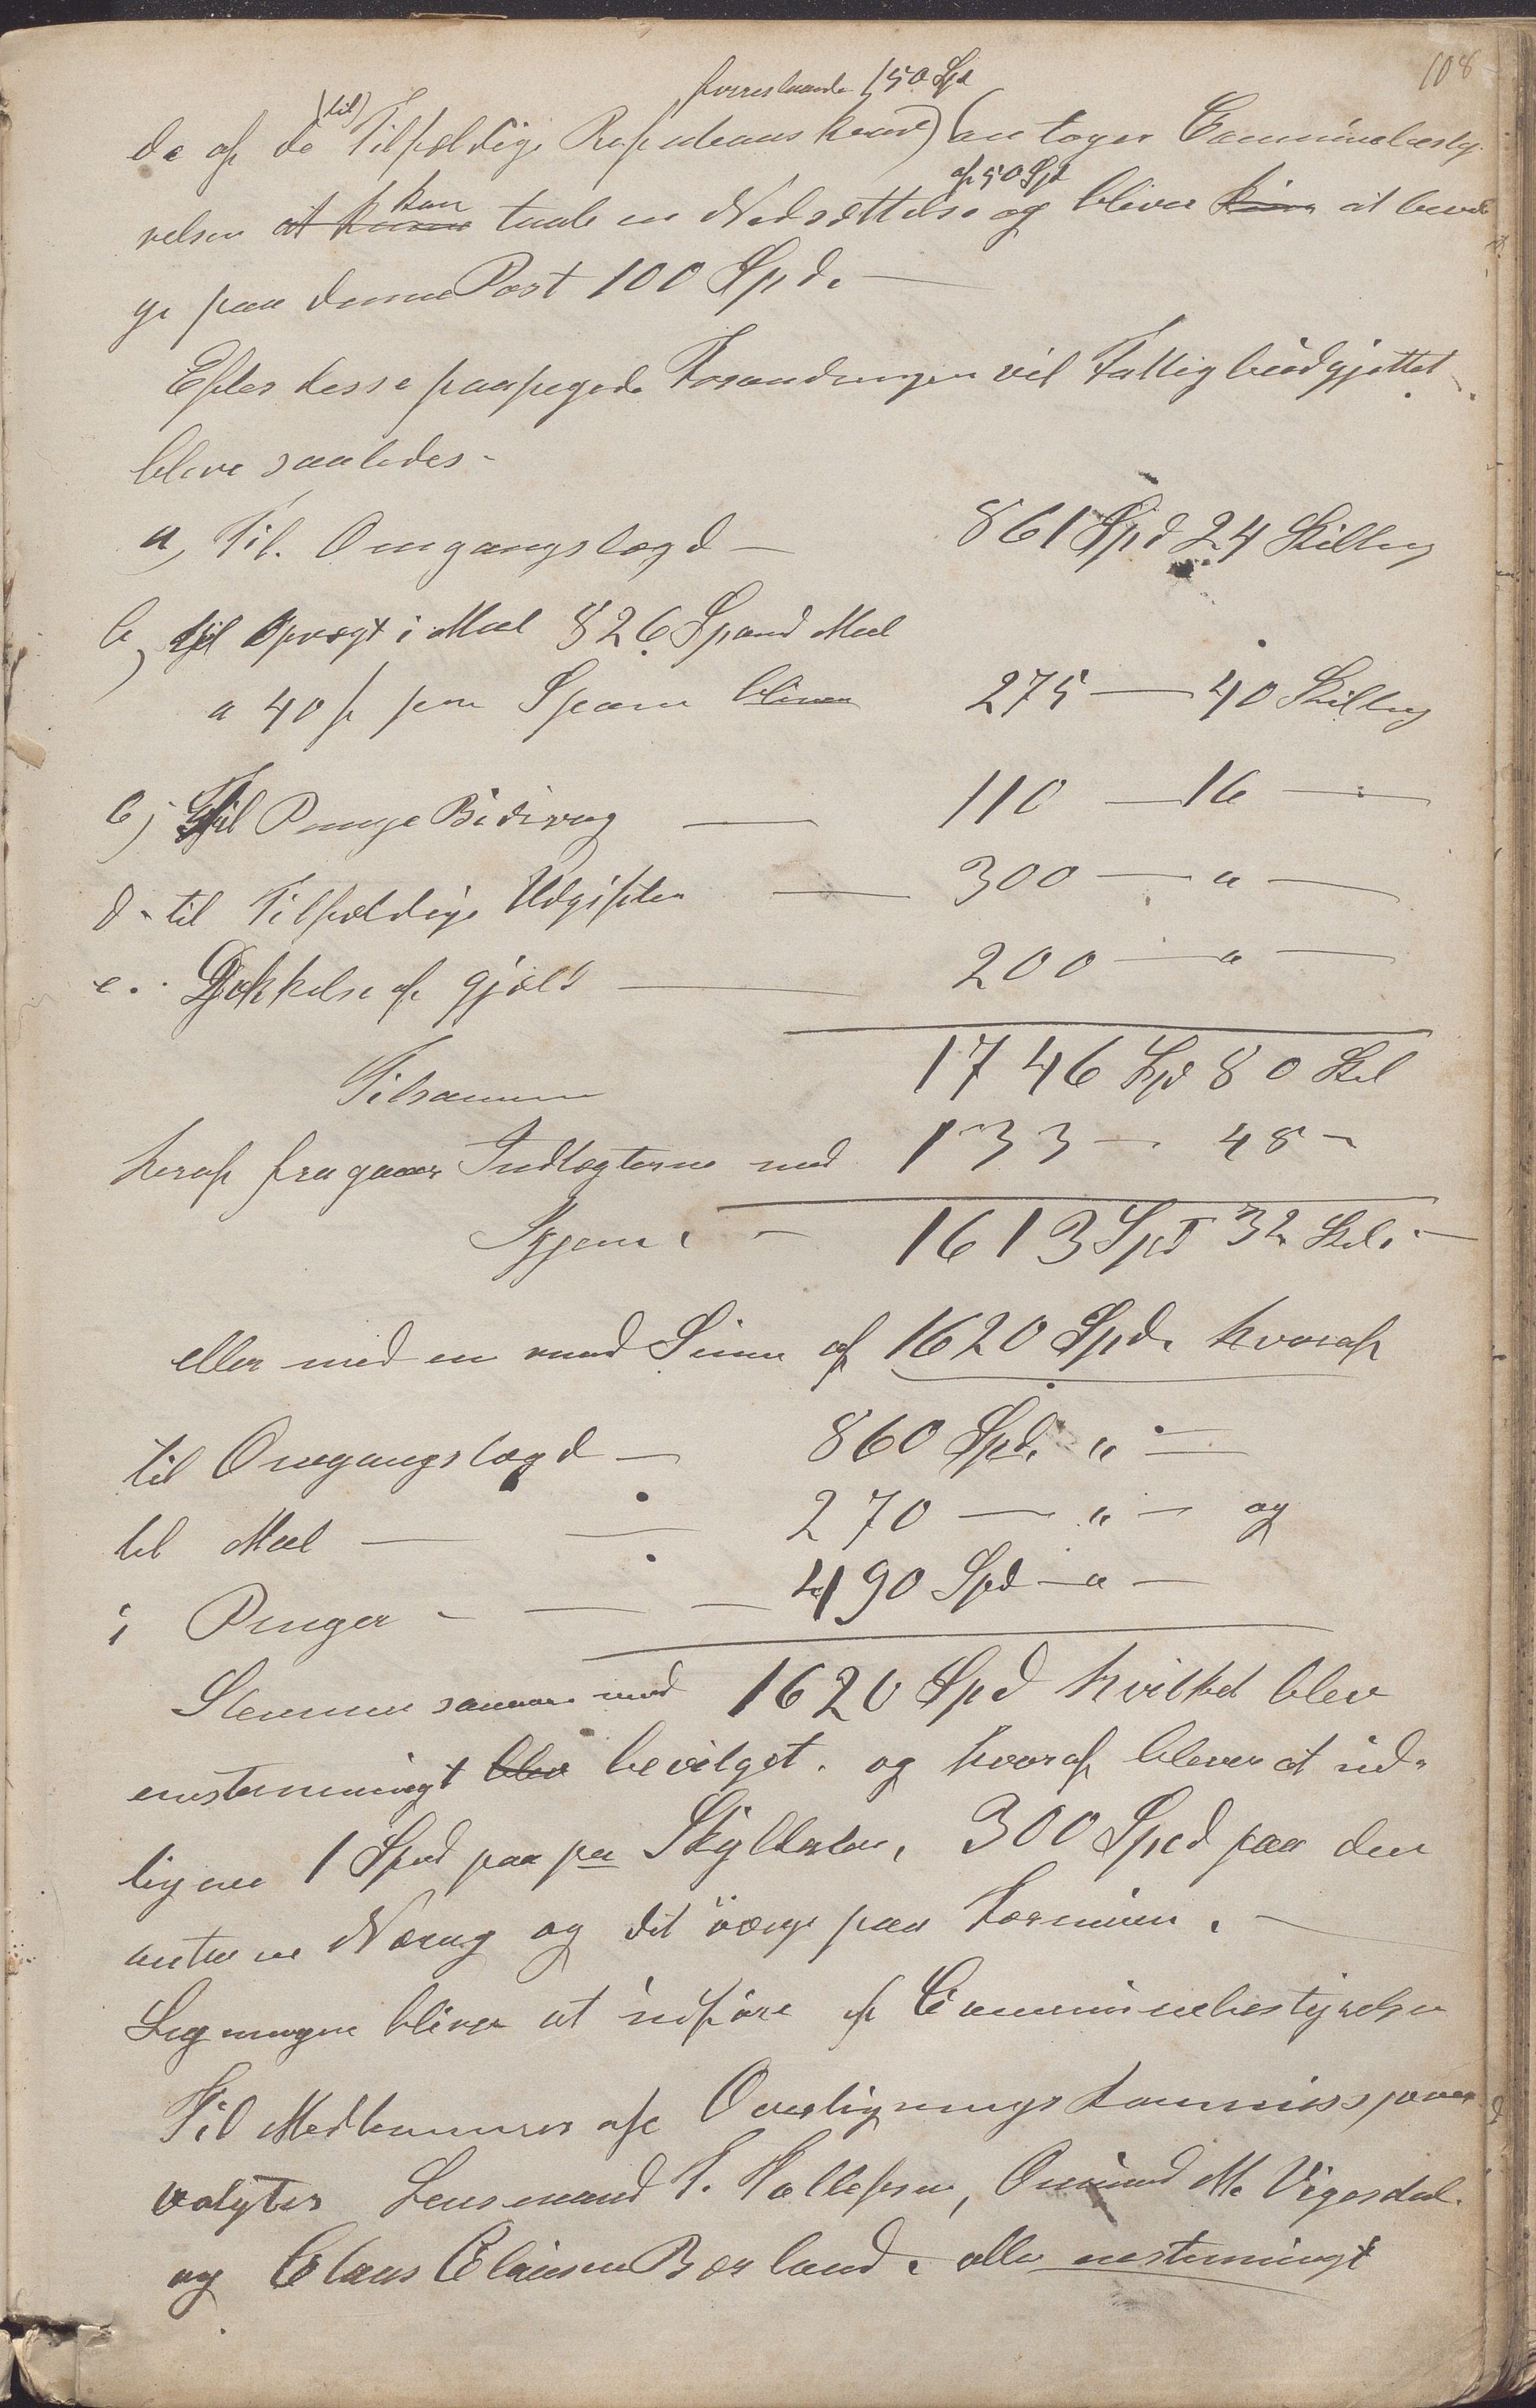 108
foreslaaede 150 Spd
de af de (til) Tilfældige antager Communebesty-
af 50 Spd
relsen at kunne kan taale en Nedsættelse og bliver kun at bevil
ge paa denne Post 100 Spd. —
Efter disse paapegede Forandringer vil Fattigbudgjettet
blive saaledes -
a, Til Omgangslægd — 861 Spd 24 Skilling
b, til Opragt i Mel 826 Spand Mel
a 40 s pr Spann bliver 275 — 40 Skilling
c, Til Penge Bidrag — 110 — 16 —
d - til Tilfældige Udgifter — 300 — " —
e. Dækkelse af gjæld — 200 — " —
Tilsammen 1746 Spd 80 Skil
heraf fragaaer Indtægterne med 133 — 48 -
Igjen. - 1613 Spd 32 Skil. —
eller med en rund Sum af 1620 Spd. hvoraf
til Omgangslægd — 860 Spd. " —
til Mel — 270 — " — og
i Penger - — 490 Spd — " —
Stemmer sammen med 1620 Spd hvilket blev
enstemmigt blev bevilget. og hvoraf bliver at ud-
ligne 1 Spd paa pr Skylddaler, 300 Spd paa den
antagne Næring og det övrige paa Formuen. —
Ligningen bliver at udföre af Communebestyrelsen
Til Medlemmer af Overligningskommissjonen
valgtes Lensmand T. Tollefsen, Omund M. Vigesdal.
og Claus Clausen Børland. alle enstemmigt